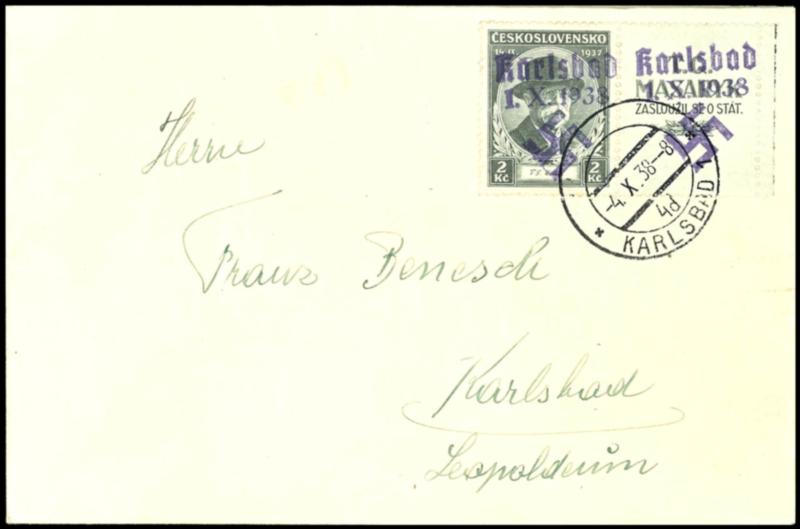 ČESKOSLOVENSKO
14. IX. 1937
Karlsbad
1. X. 1938
2 Kč 2 Kč
Karlsbad
MASARYK
1. X. 1938
ZASLOUŽIL SE O STÁT.
-4. X. 38-8
4d
* KARLSBAD 1 *
Herrn
Franz Benesch
Karlsbad